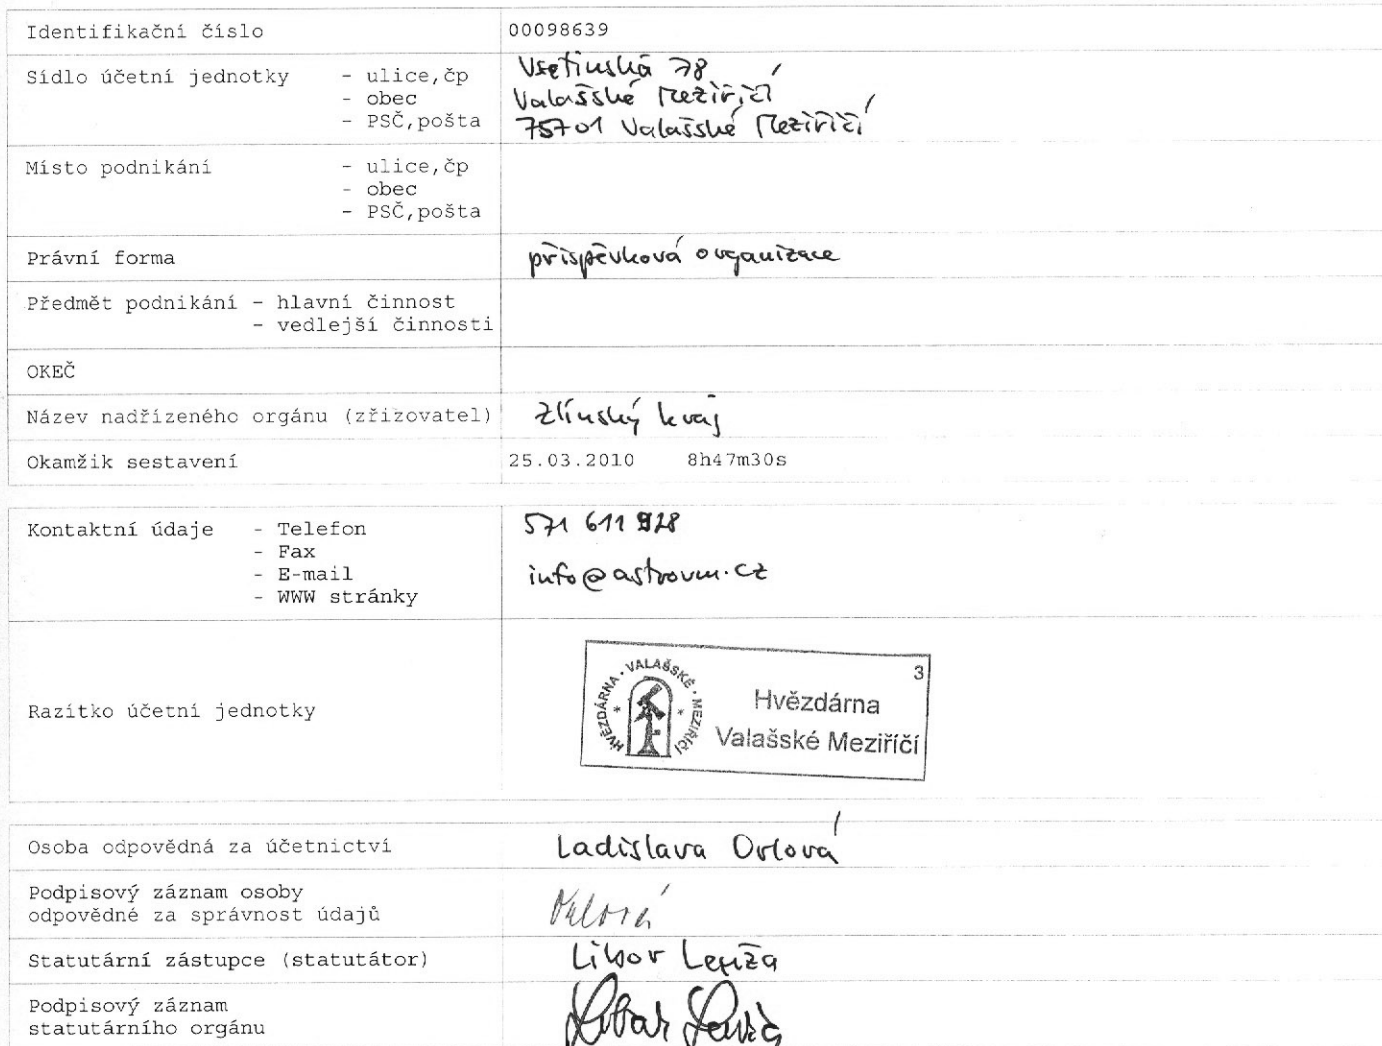 Identifikační číslo 00098639
Sídlo účetní jednotky - ulice,čp Vsetínská 78
- obec Valašské Meziříčí
- PSČ,pošta 75701 Valašské Meziříčí
Místo podnikání - ulice,čp
- obec
- PSČ,pošta
Právní forma příspěvková organizace
Předmět podnikání - hlavní činnost
- vedlejší činnosti
OKEČ
Název nadřízeného orgánu (zřizovatel) Zlínský kraj
Okamžik sestavení 25.03.2010 8h47m30s
Kontaktní údaje - Telefon 571 611 928
- Fax
- E-mail info@astrovm.cz
- WWW stránky
HVĚZDÁRNA · VALAŠSKÉ · MEZIŘÍČÍ
3
Hvězdárna
Razítko účetní jednotky
Valašské Meziříčí
Osoba odpovědná za účetnictví Ladislava Orlová
Podpisový záznam osoby
odpovědné za správnost údajů Orlová
Statutární zástupce (statutátor) Libor Lenža
Podpisový záznam
statutárního orgánu Libor Lenža